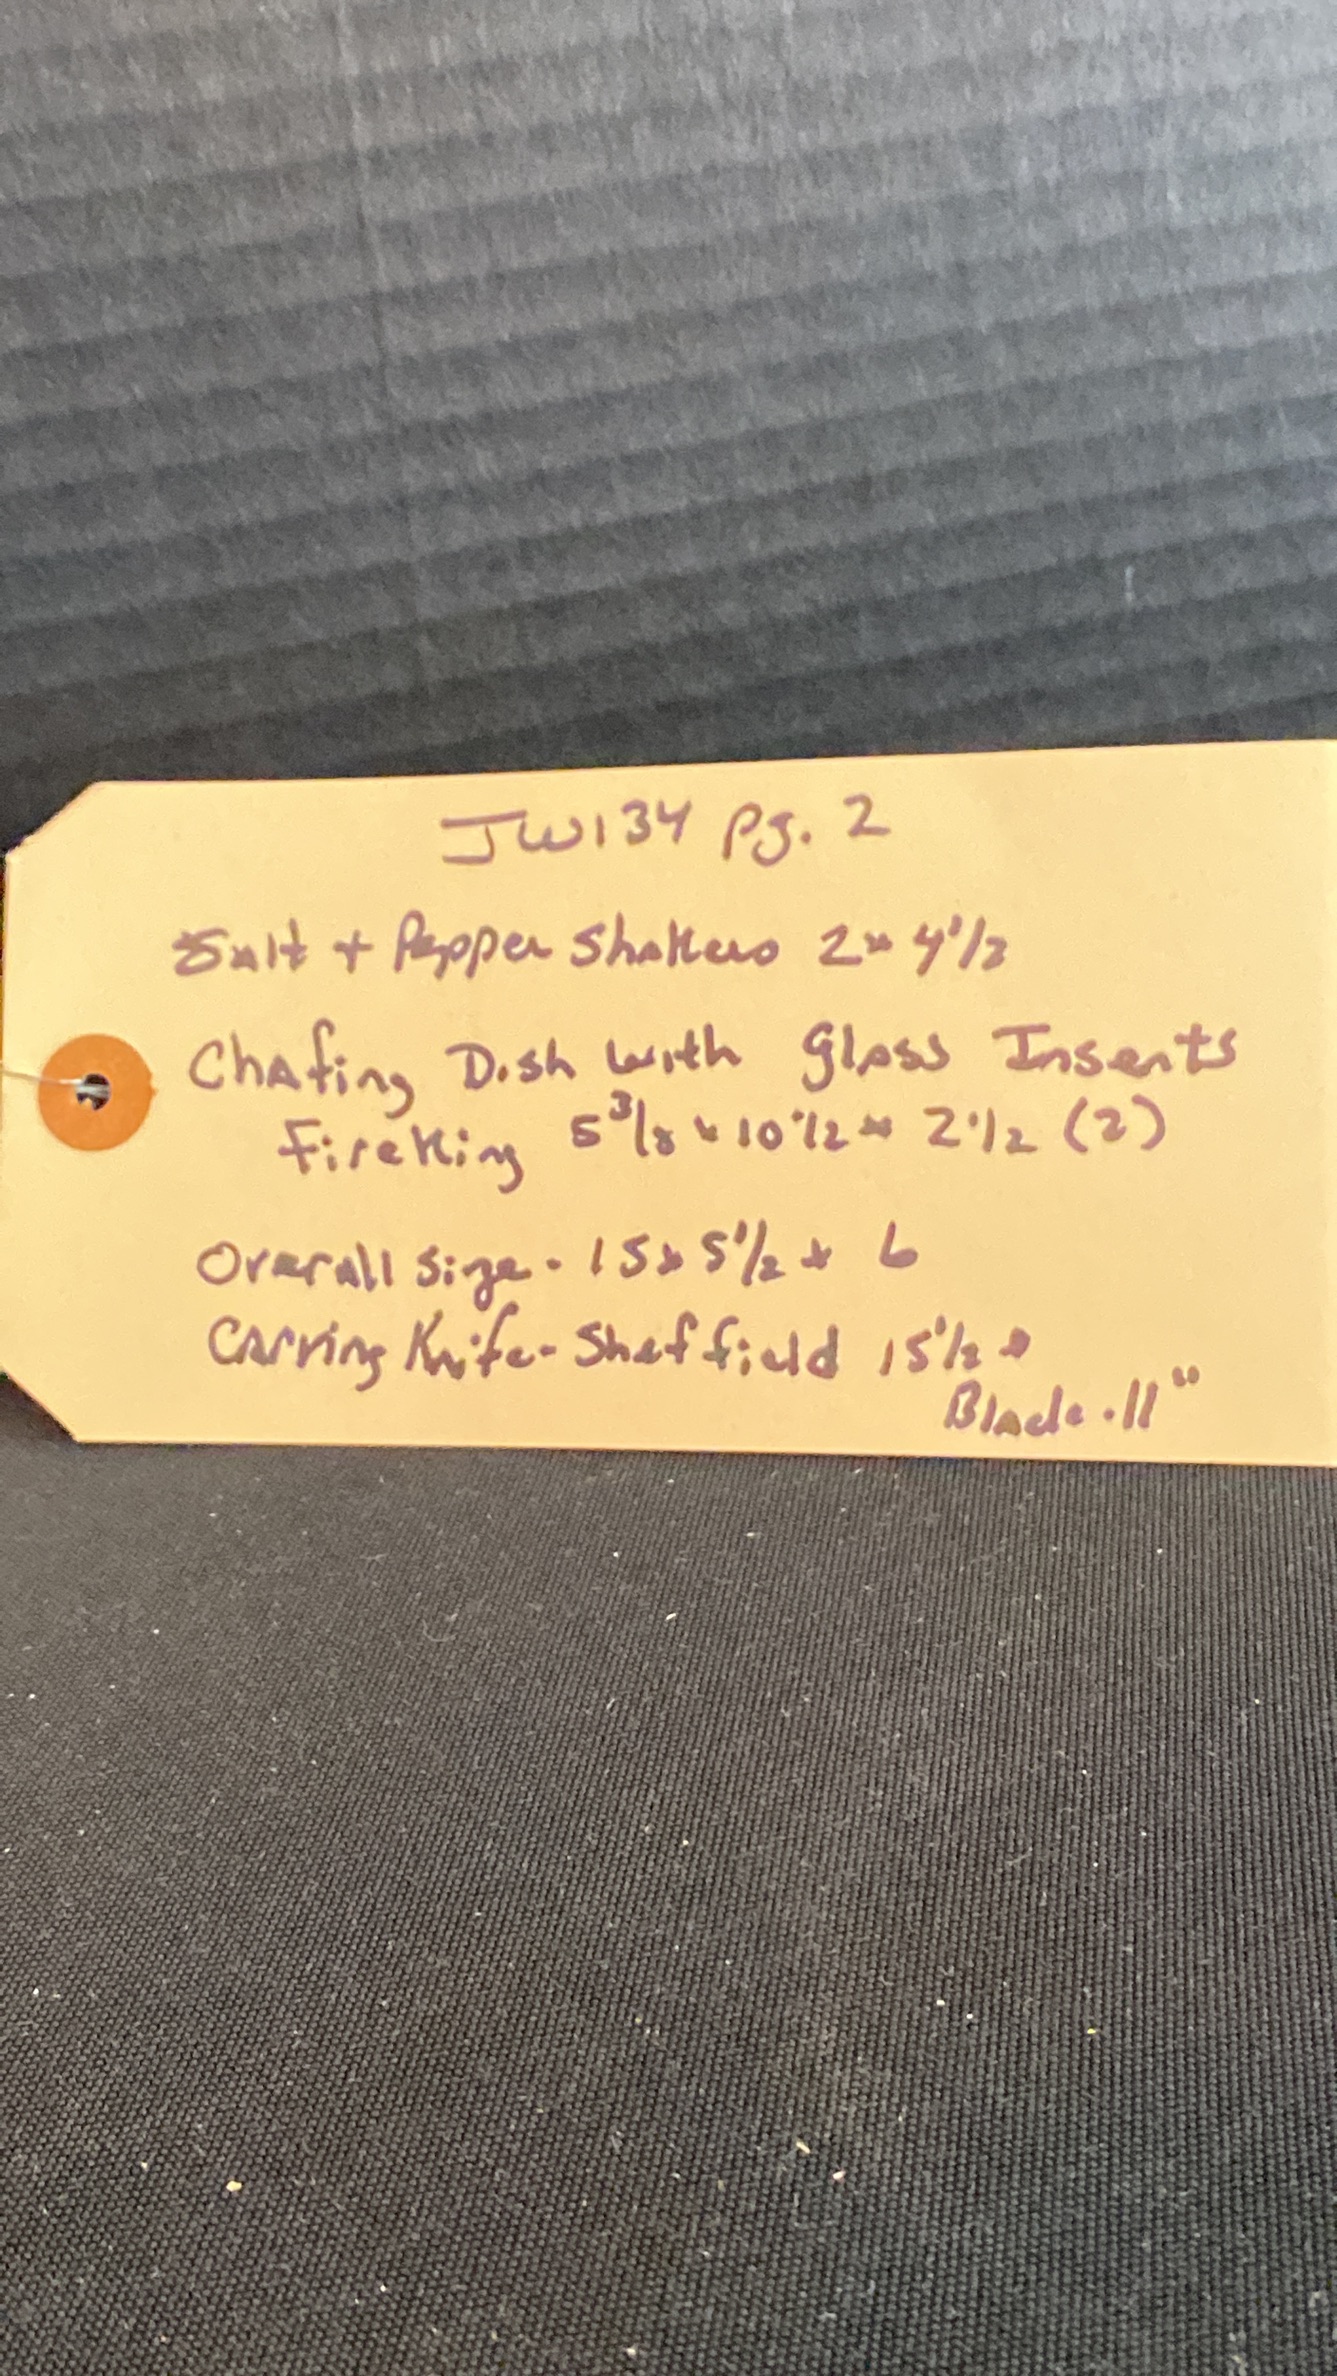 JW134 Pg. 2
Salt + Pepper Shakers 2 x 4 1/2
Chafing Dish with Glass Inserts
Fire King 5 3/8 x 10 1/2 x 2 1/2 (2)
Overall Size - 15 x 5 1/2 x 6
Carving Knife - Sheffield 15 1/2
Blade - 11"